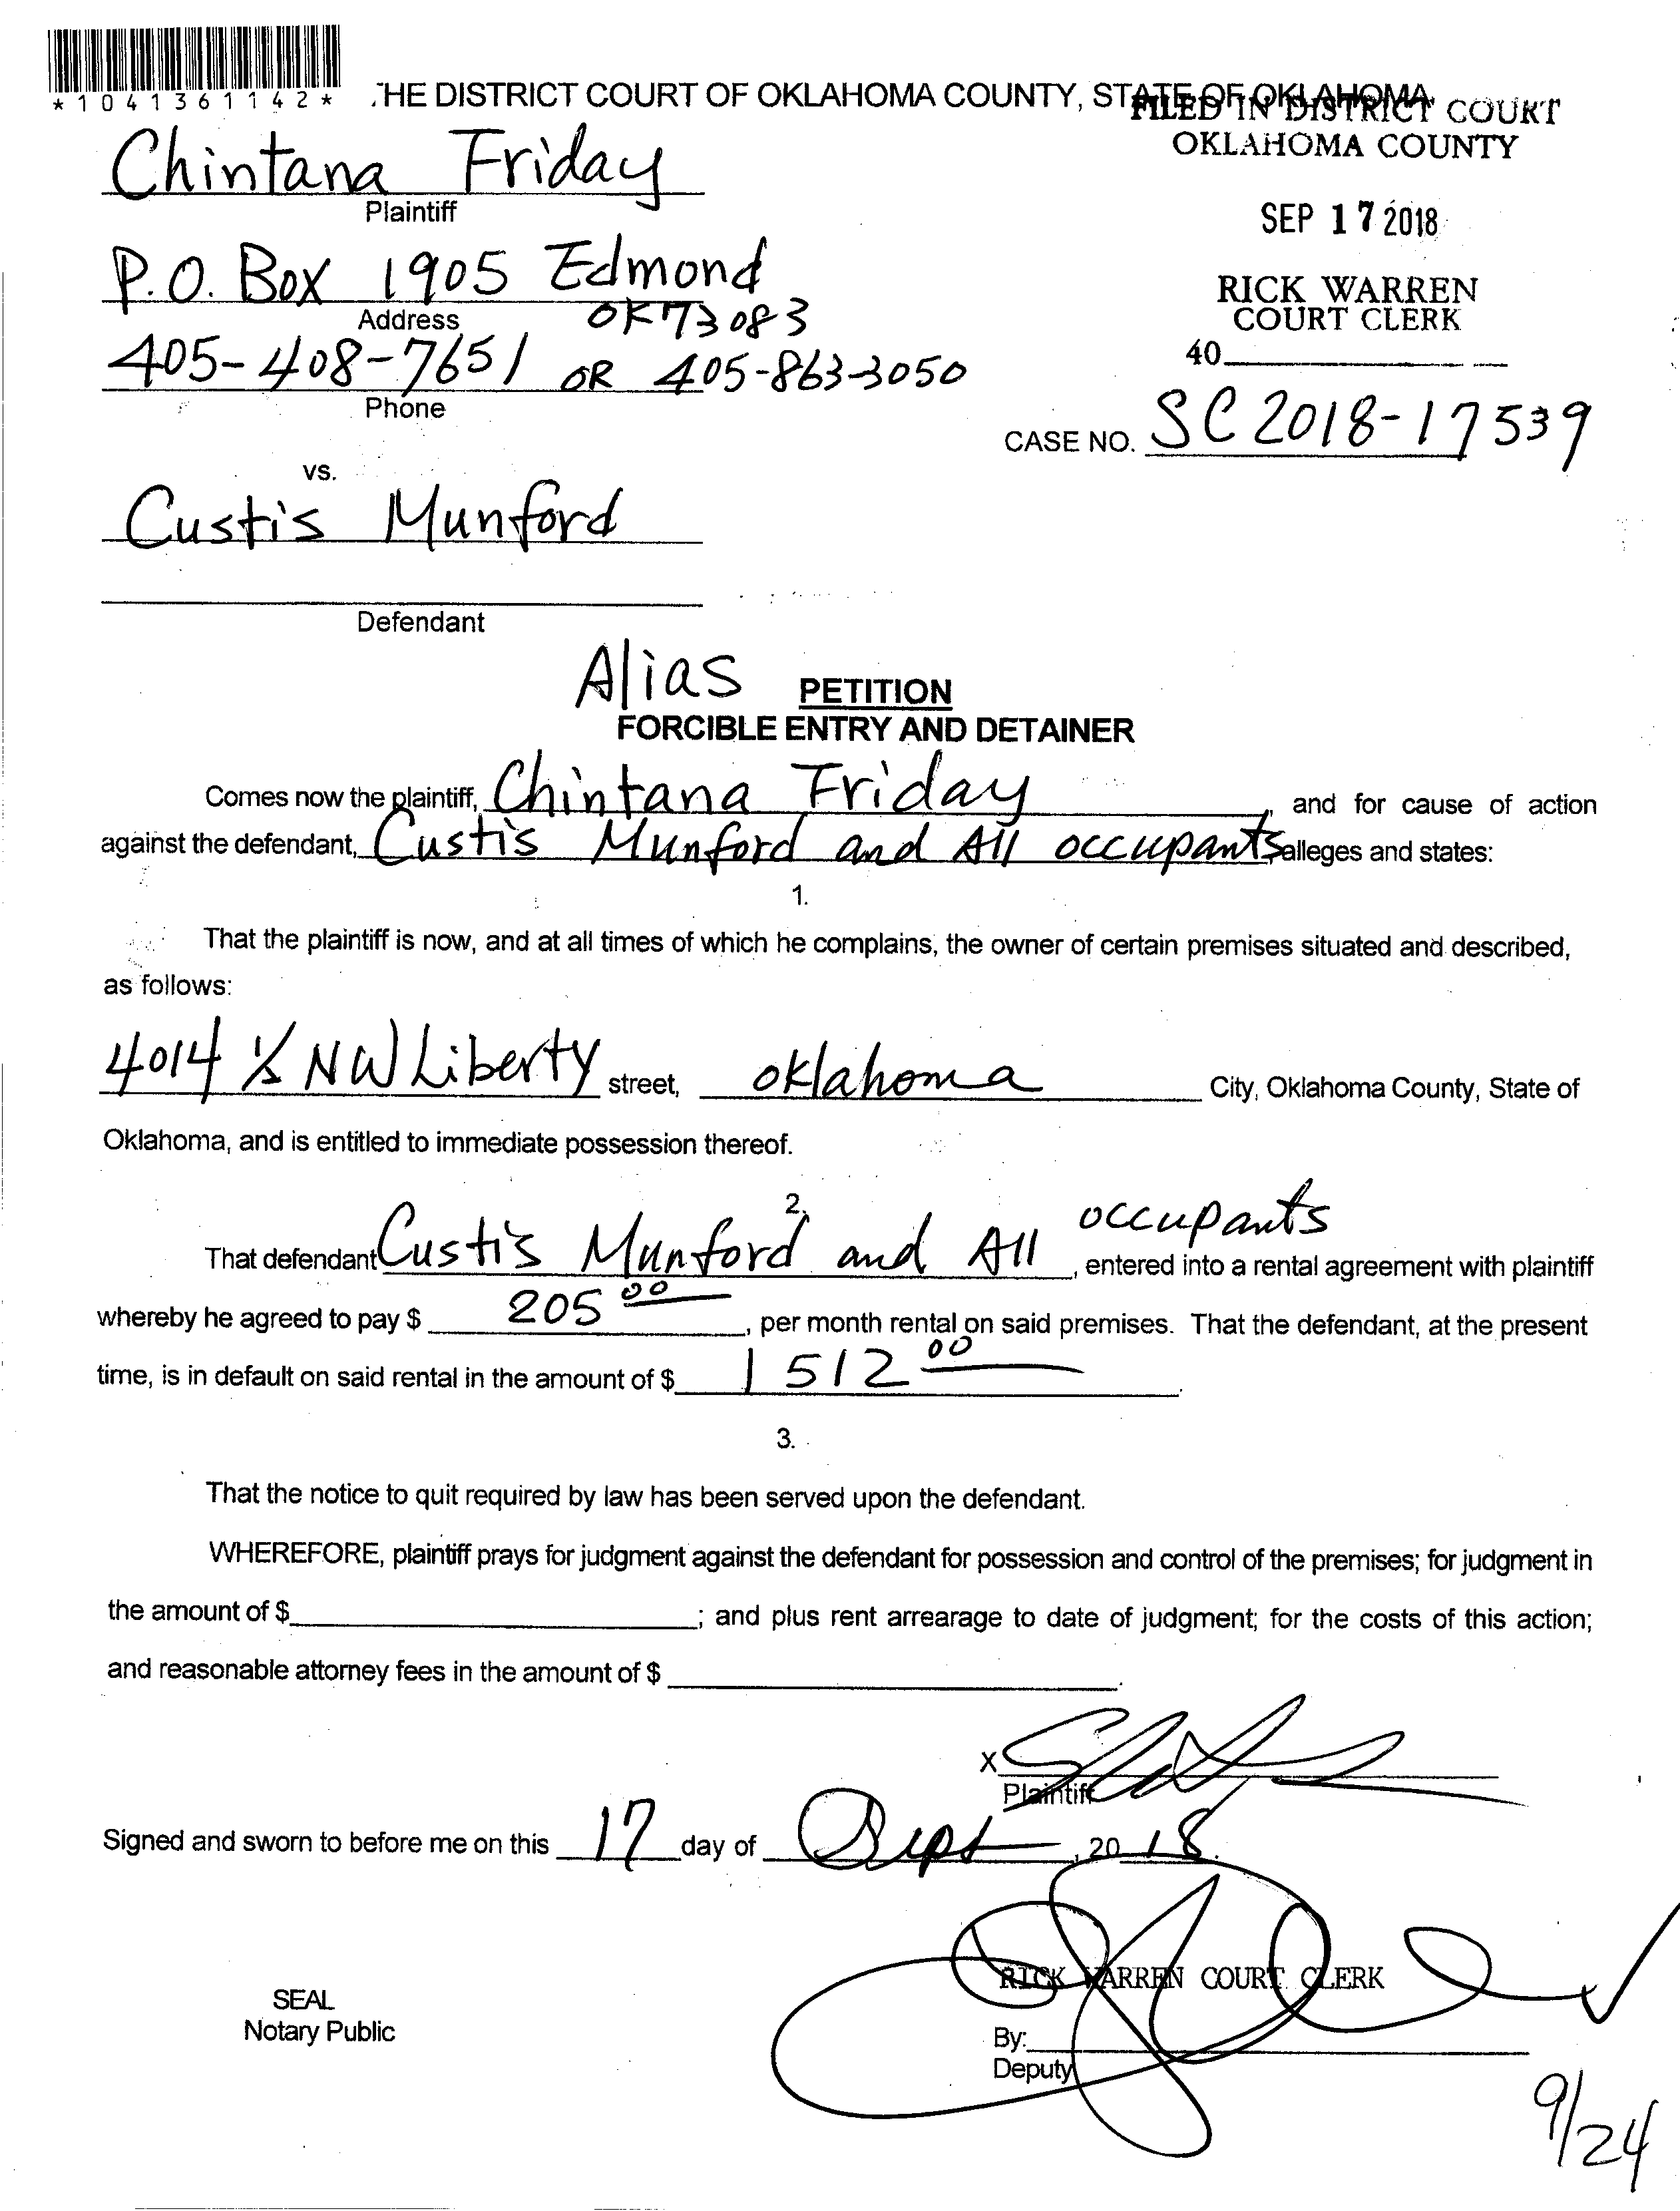 *1041361142*
THE DISTRICT COURT OF OKLAHOMA COUNTY, STATE OF OKLAHOMA
FILED IN DISTRICT COURT
OKLAHOMA COUNTY
Chintana Friday
Plaintiff
SEP 17 2018
P.O. Box 1905 Edmond
OK 73083
Address
RICK WARREN
COURT CLERK
40
405-408-7651 OR 405-863-3050
Phone
CASE NO. SC 2018-17539
vs.
Custis Munford
Defendant
Alias PETITION
FORCIBLE ENTRY AND DETAINER
Comes now the plaintiff, Chintana Friday, and for cause of action
against the defendant, Custis Munford and All occupants alleges and states:
1.
That the plaintiff is now, and at all times of which he complains, the owner of certain premises situated and described,
as follows:
4014 ½ NW Liberty street, oklahoma City, Oklahoma County, State of
Oklahoma, and is entitled to immediate possession thereof.
2.
That defendant Custis Munford and All occupants, entered into a rental agreement with plaintiff
whereby he agreed to pay $ 205 00, per month rental on said premises. That the defendant, at the present
time, is in default on said rental in the amount of $ 1512 00.
3.
That the notice to quit required by law has been served upon the defendant.
WHEREFORE, plaintiff prays for judgment against the defendant for possession and control of the premises; for judgment in
the amount of $; and plus rent arrearage to date of judgment; for the costs of this action;
and reasonable attorney fees in the amount of $.
X
Plaintiff
Signed and sworn to before me on this 17 day of Sept, 20 18.
RICK WARREN COURT CLERK
SEAL
Notary Public
By:
Deputy
9/24